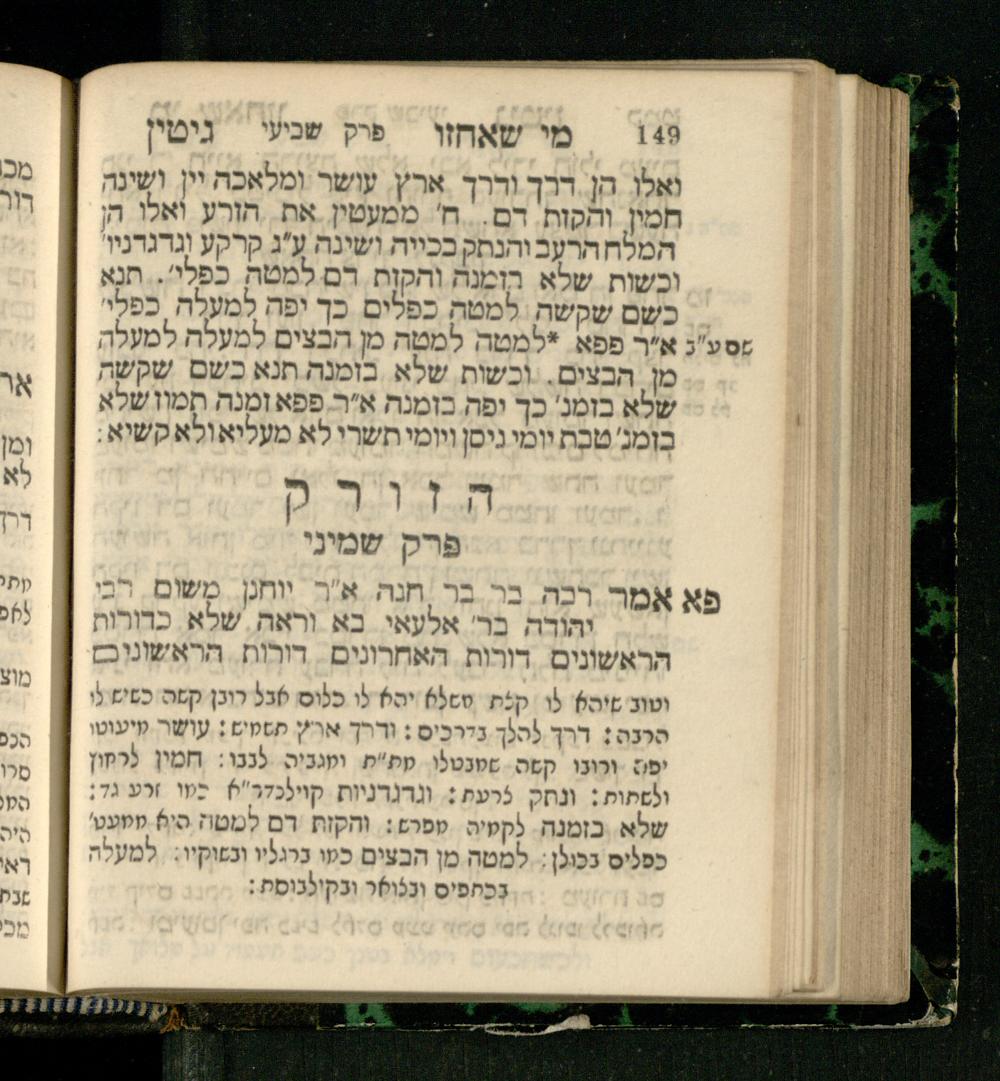 149 מי שאחזו פרק שביעי גיטין
ואלו הן דרך ודרך ארץ עושר ומלאכה יין ושינה
חמין והקזת דם. ח׳ ממעטין את הזרע ואלו הן
המלח הרעב והנתק בכייה ושינה ע״ג קרקע וגדגדניו׳
וכשות שלא בזמנה והקזת דם למטה כפלי׳. תנא
כשם שקשה למטה כפלים כך יפה למעלה כפלי׳
שם ע״ב א״ר פפא *למטה למטה מן הבצים למעלה למעלה
מן הבצים. וכשות שלא בזמנה תנא כשם שקשה
שלא בזמנ׳ כך יפה בזמנה א״ר פפא זמנה תמוז שלא
בזמנ׳ טבת יומי ניסן ויומי תשרי לא מעליא ולא קשיא:
הזורק
פרק שמיני
פא אמר רבה בר בר חנה א״ר יוחנן משום רבי
יהודה בר׳ אלעאי בא וראה שלא כדורות
הראשונים דורות האחרונים דורות הראשונים
וטוב שיהא לו קצת משלא יהא לו כלום אבל רובן קשה כשיש לו
הרבה: דרך להלך בדרכים: ודרך ארץ תשמיש: עושר מיעוטו
יפה ורובו קשה שמבטלו מת״ת ומגביה לבבו: חמין לרחוץ
ולשתות: ונתק צרעת: וגדגדניות קוילנדר״א כמו זרע גד:
שלא בזמנה לקמיה מפרש: והקזת דם למטה היא ממעט׳
כפלים בכולן: למטה מן הבצים כמו ברגליו ובשוקיו: למעלה
בכתפים ובצואר ובקילבוסת: